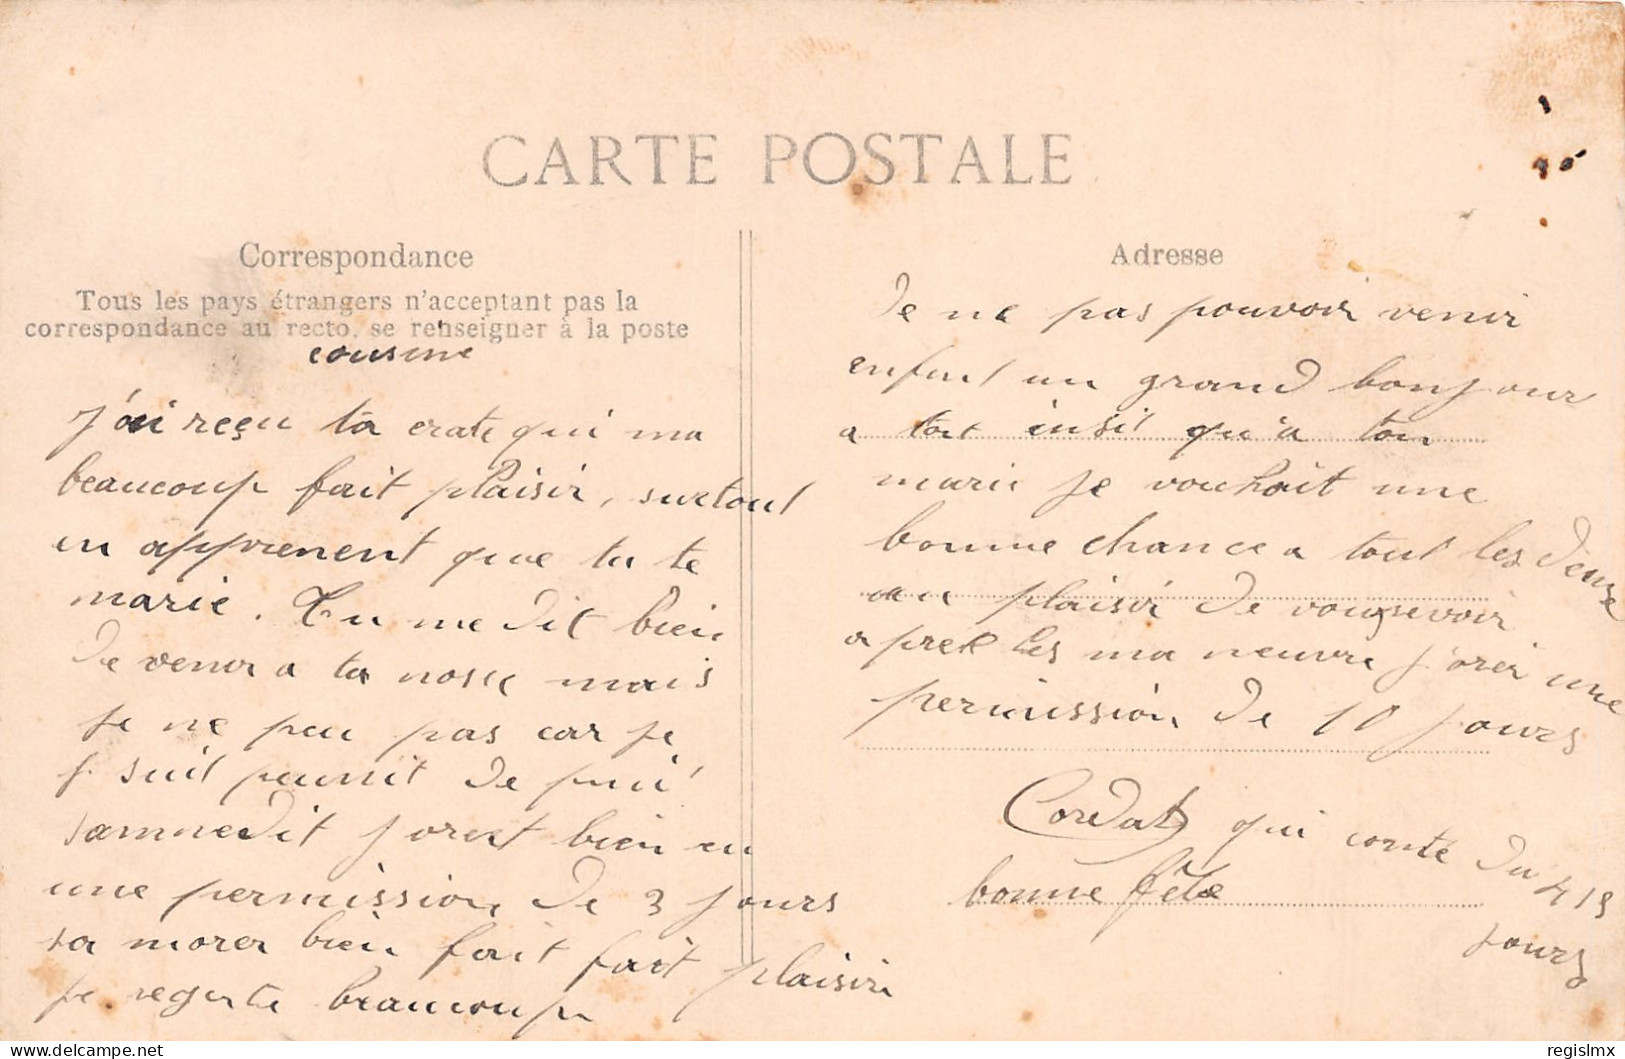 CARTE POSTALE
Correspondance
Tous les pays étrangers n'acceptant pas la
correspondance au recto, se renseigner à la poste
cousine
j'ai reçu ta crate qui ma
beaucoup fait plaisir, surtout
en apprenent que tu te
marie. Tu me dit bien
de venir a ta nosse mais
je ne peu pas car je
suit punit de
samnedit j orest bien eu
une permission de 3 jours
sa morer bien fait fait plaisir
je regerte beaucoup
Adresse
de ne pas pouvoir venir
enfint un grand bonjour
a tout insit qu'a ton
marie je vouhait une
bonne chance a tout les deux
au plaisir de vous revoir
apret les ma neuvre j'orei une
permission de 10 jours
Cordat qui conte du 419
jours
bonne fête
regislmx
delcampe.net